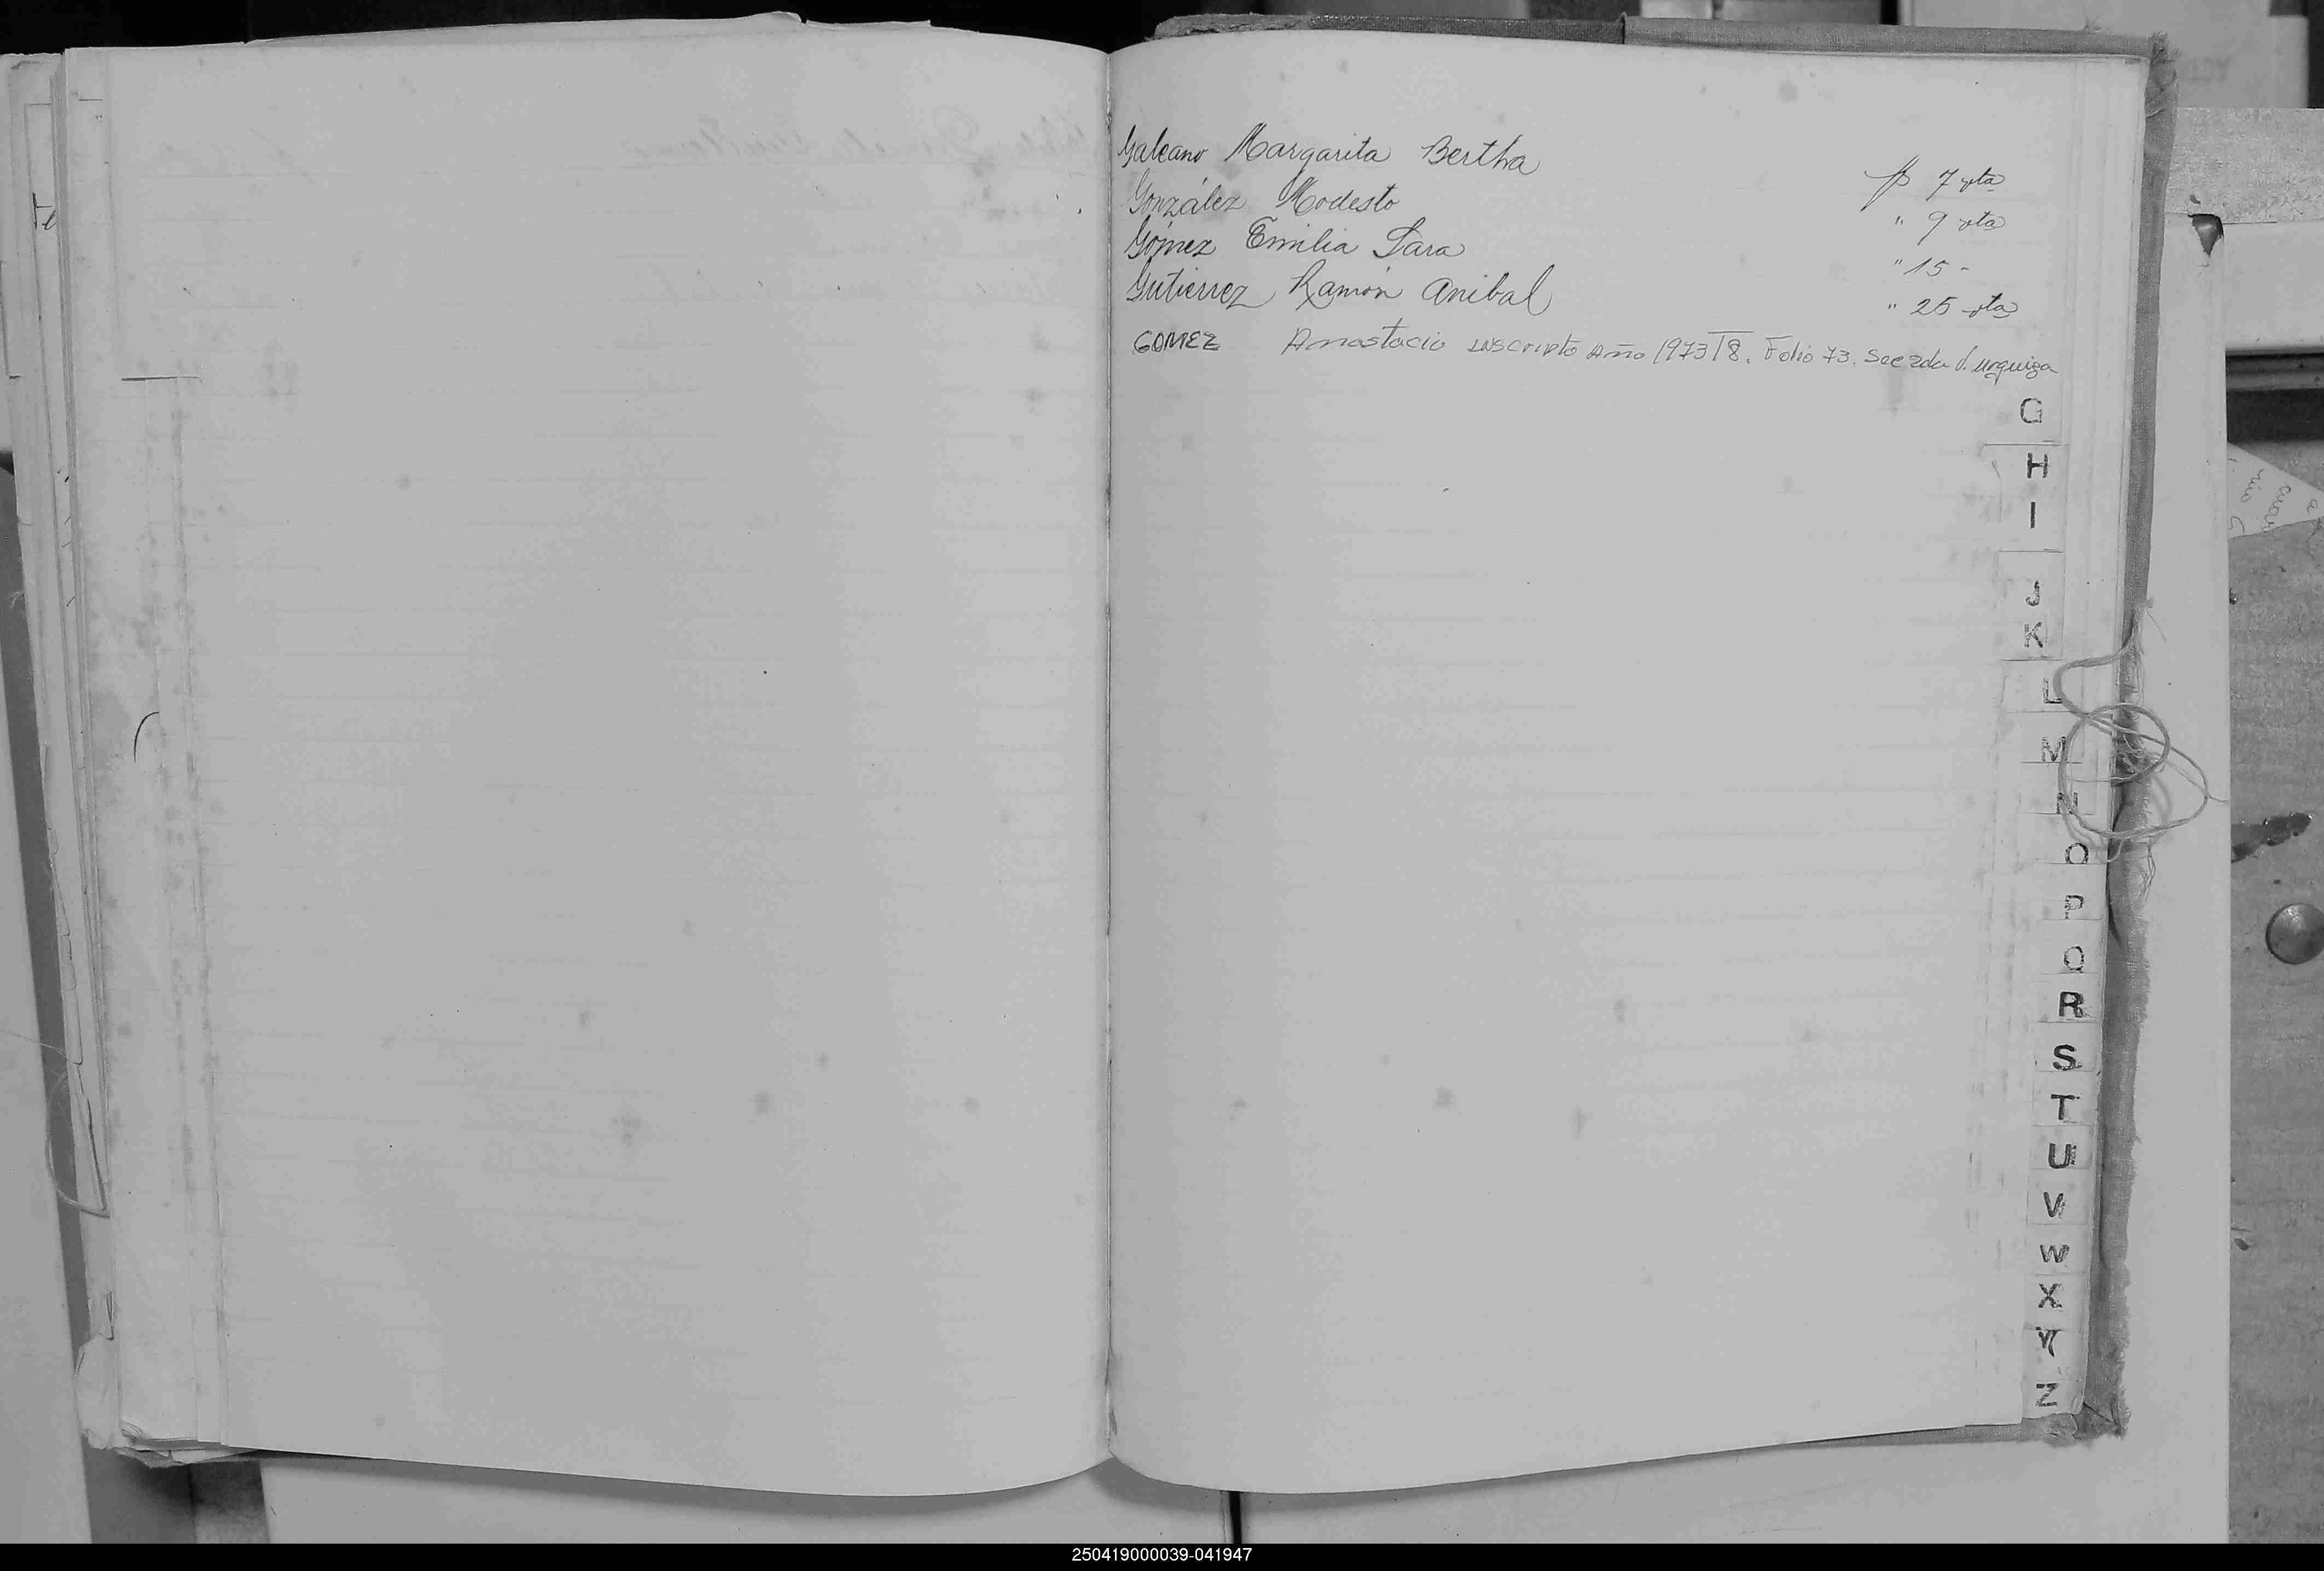 Galeano Margarita Bertha fº 7 vta
González Modesto " 9 vta
Gómez Emilia Sara " 15 -
Gutierrez Ramón Anibal " 25 vta
GOMEZ Anastacio inscripto Año 1973 T 8. Folio 73. Sec 2da V. Urquiza
G
H
I
J
K
L
M
N
O
P
Q
R
S
T
U
V
W
X
Y
Z
250419000039-041947